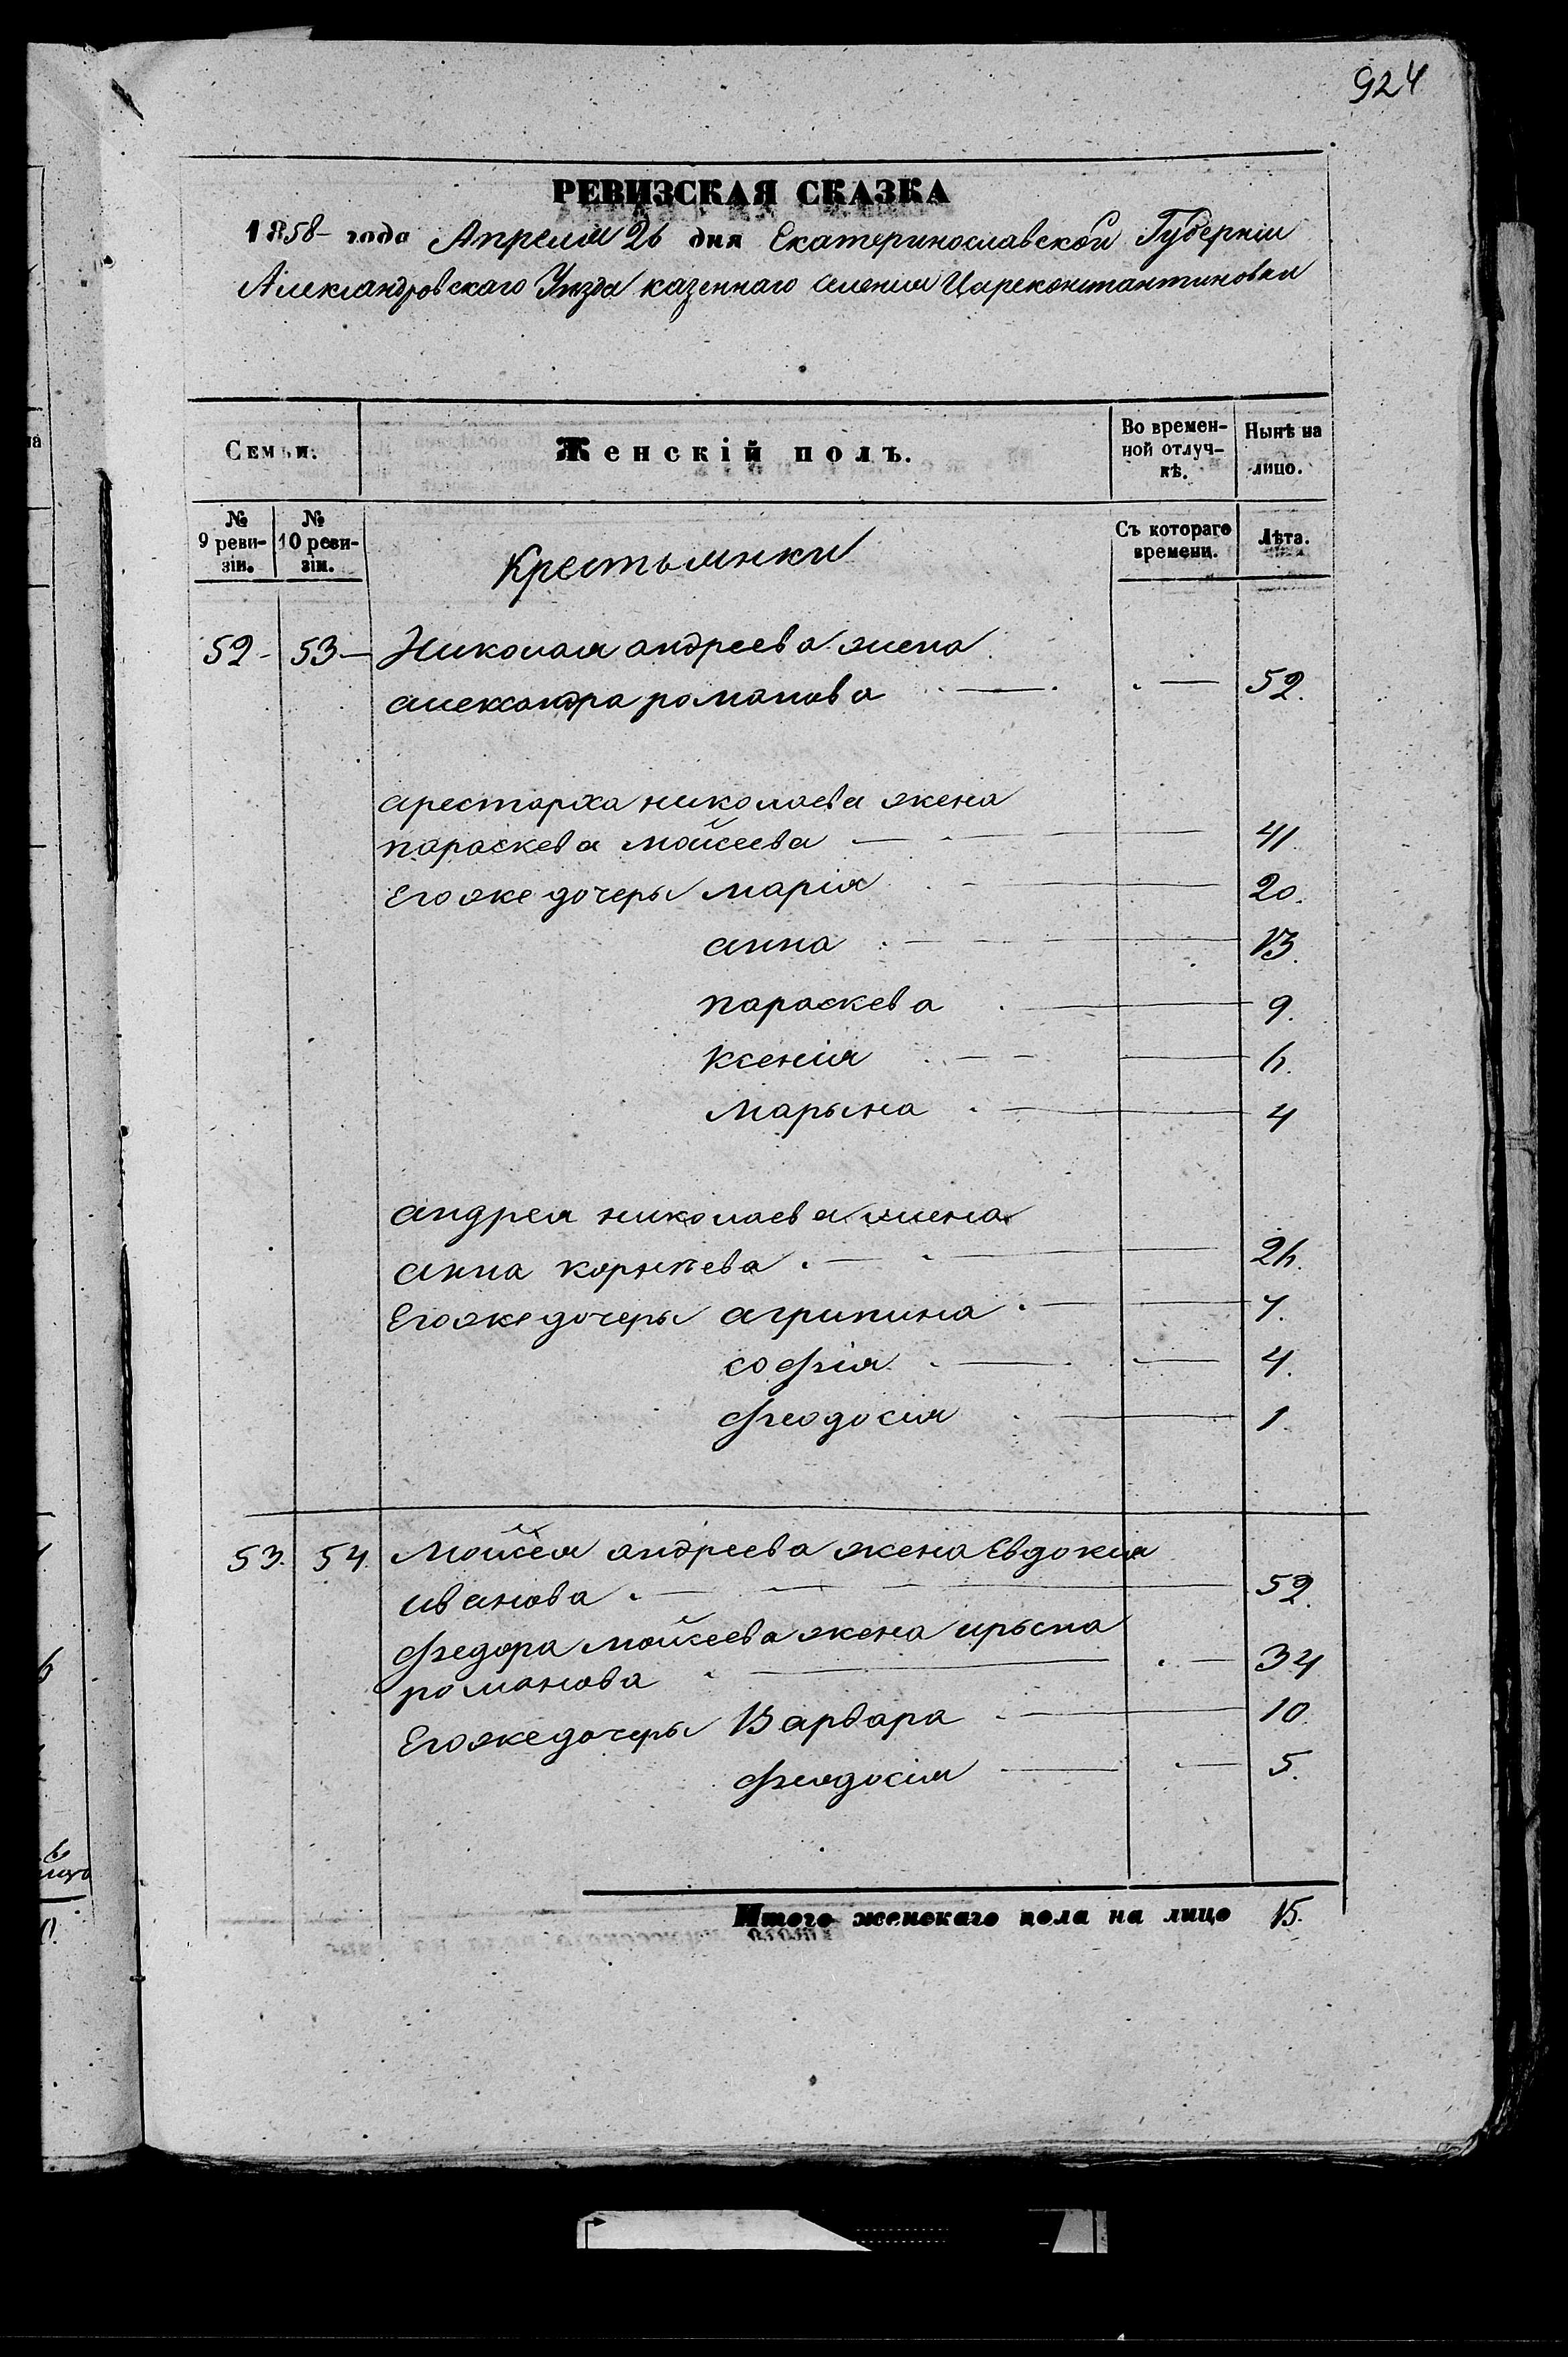 924
РЕВИЗСКАЯ СКАЗКА
1858 года Апреля 26 дня Екатеринославской Губерніи
Александровскаго Уезда казеннаго селения Цареконстантиновки
Семьи. Женскій полъ. Во времен- Нынѣ на
ной отлуч- лицо.
кѣ.
№ № Съ котораго Лѣта.
9 реви- 10 реви- времени.
зіи. зіи.
Крестьянки
52 - 53 - Николая андреева жена
александра романова 52.
арестарха николаева жена
параскева мойсеева 41.
Его же дочеры марія 20.
анна 13.
параскева 9.
Ксенія 6.
Марына 4
андрея николаева жена
анна корнѣева 26.
Его же дочеры агрипина 7.
софія 4.
феодосия 1.
53. 54. Мойсея андреева жена Евдокия
иванова 52.
федора мойсеева жена ирына
романова 34
Его же дочеры Варвара 10.
феодосия 5.
Итого женскаго пола на лицо 15.